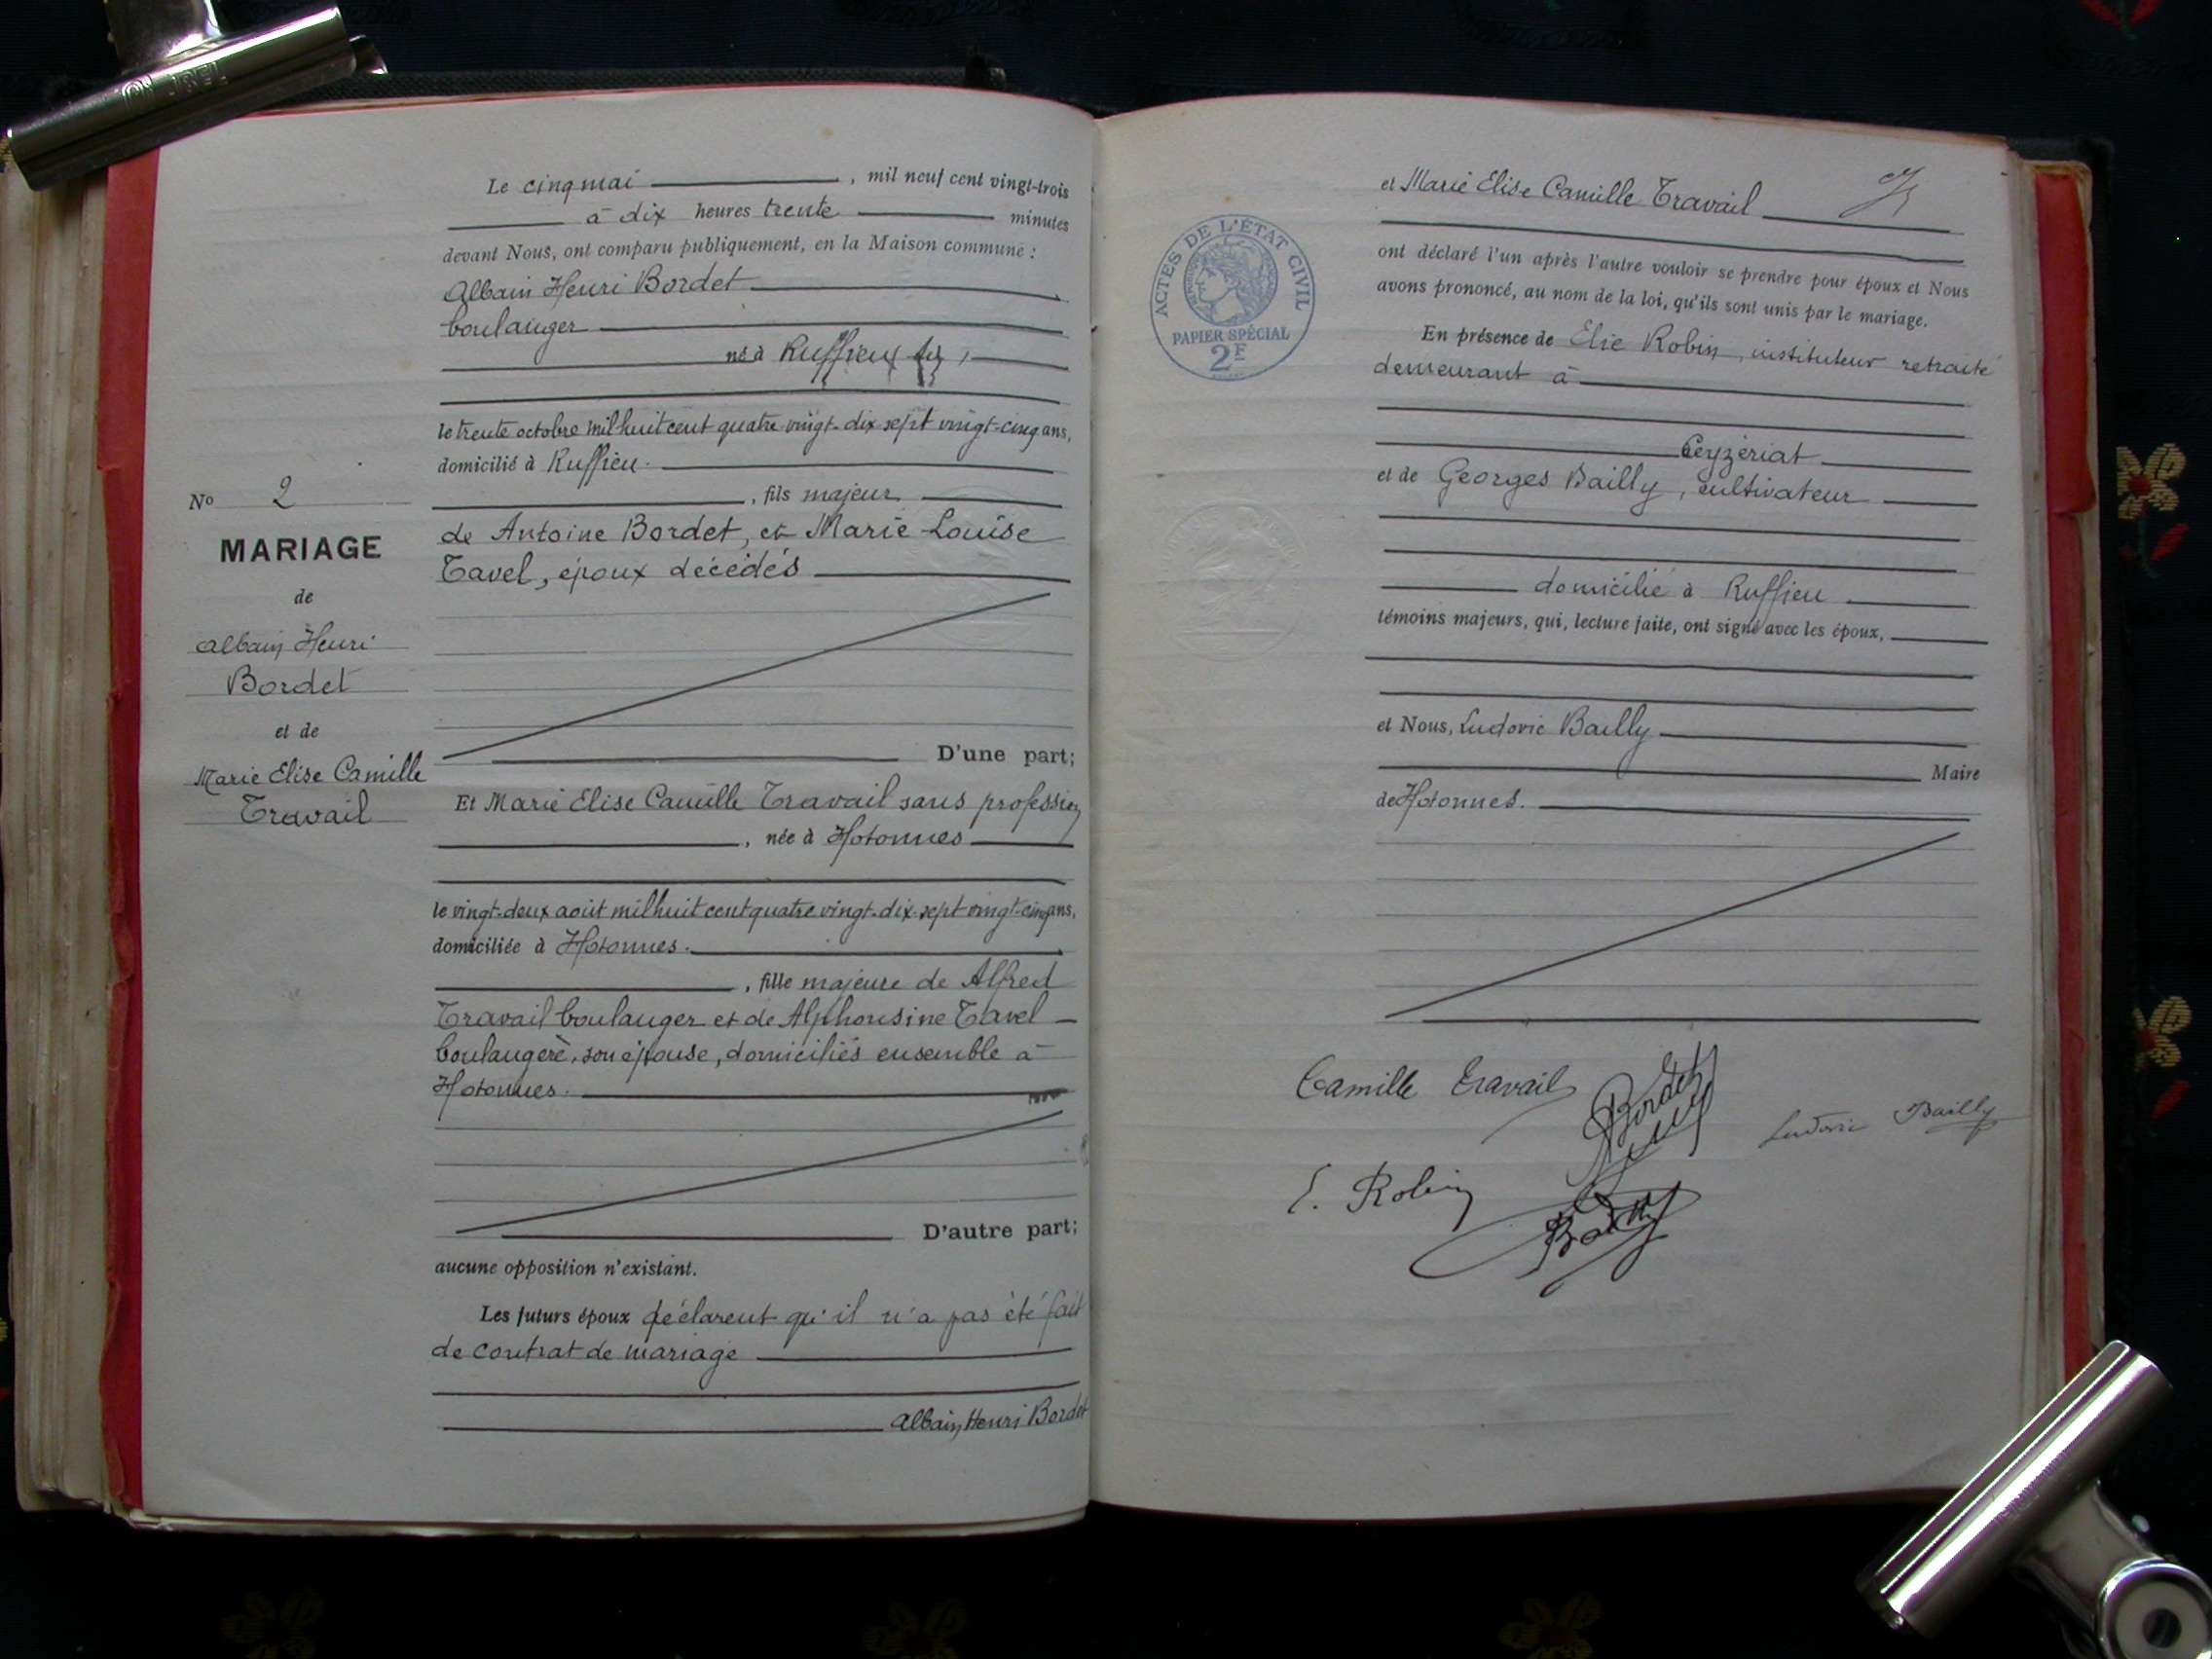 Le cinq mai, mil neuf cent vingt-trois
à dix heures trente minutes
devant Nous, ont comparu publiquement, en la Maison commune :
Albain Henri Bordet
boulanger
né à Ruffieu
le trente octobre mil huit cent quatre-vingt-dix-sept vingt-cinq ans,
domicilié à Ruffieu.
, fils majeur
de Antoine Bordet, et Marie Louise
Tavel, époux décédés
No 2
MARIAGE
de
Albain Henri
Bordet
et de
Marie Elise Camille
Travail
D'une part;
Et Marie Elise Camille Travail sans profession
, née à Hotonnes
le vingt-deux août mil huit cent quatre vingt-dix-sept vingt-cinq ans,
domiciliée à Hotonnes.
, fille majeure de Alfred
Travail boulanger et de Alphonsine Tavel
boulangère, son épouse, domiciliés ensemble à
Hotonnes.
D'autre part;
aucune opposition n'existant.
Les futurs époux déclarent qu'il n'a pas été fait
de contrat de mariage
Albain Henri Bordet
et Marie Elise Camille Travail
ont déclaré l'un après l'autre vouloir se prendre pour époux et Nous
avons prononcé, au nom de la loi, qu'ils sont unis par le mariage.
En présence de Elie Robin, instituteur retraité
demeurant à
Ceyzériat
et de Georges Bailly, cultivateur
domicilié à Ruffieu
témoins majeurs, qui, lecture faite, ont signé avec les époux,
et Nous, Ludovic Bailly
Maire
de Hotonnes.
ACTES DE L'ÉTAT CIVIL
PAPIER SPÉCIAL
2F
Camille Travail
Bordet
Ludovic Bailly
E. Robin
Bailly